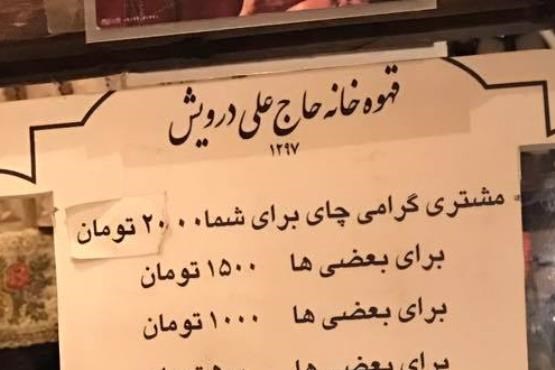 قهوه خانه حاج علی درویش
۱۲۹۷
مشتری گرامی چای برای شما ۲۰۰۰ تومان
برای بعضی ها ۱۵۰۰ تومان
برای بعضی ها ۱۰۰۰ تومان
برای بعضی ها